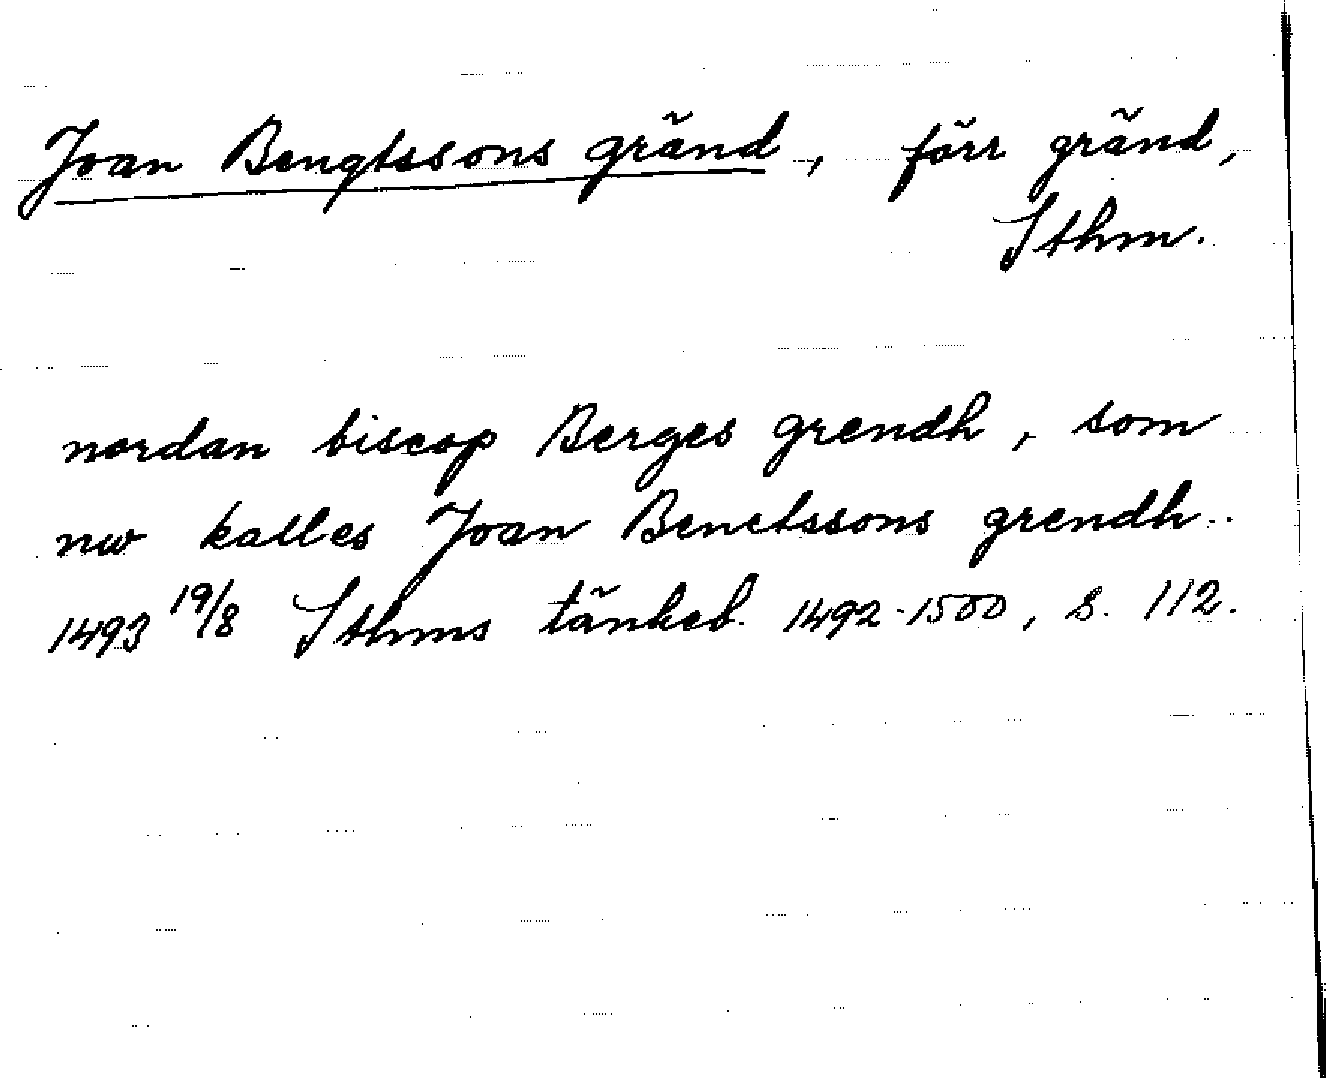 Joan Bengtssons gränd, förr gränd,
Sthm.
nordan biscop Berges grendh, som
nw kalles Joan Benctssons grendh.
1493 19/8 Sthms tänkeb. 1492-1500, s. 112.